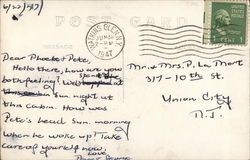 6/22/1947
POST CARD
MESSAGE
SPRING GLEN N.Y.
JUN 23
2 - PM
1947
1¢
Dear Phoebe & Pete,
Hello there, how are you
both feeling? We spent
Sun. night at
this cabin. How was
Pete's head Sun. morning
when he woke up? Take
care of yourself now.
Love
Mr. & Mrs. P. La Mort
317-10th St.
Union City
N.J.